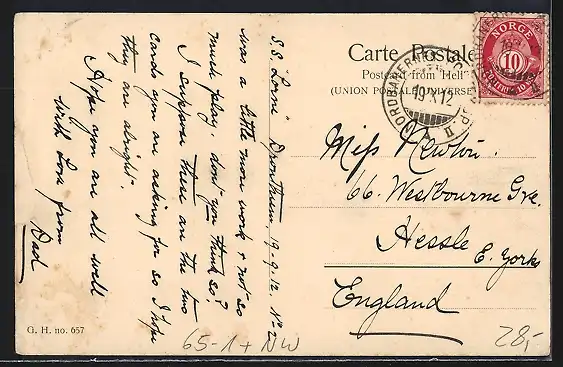 S.S. Lorne Drontheim 19-9-12. No 2
was a little more work & not so
much play. don't you think so?
I suppose these are the two
cards you are asking for so I hope
they are alright.
Hope you are all well
with love from
Dad
Carte Postale
Postcard from "Hell"
(UNION POSTALE UNIVERSE
NORGE
10
19 IX 12
II
Miss Newton.
66. Westbourne Gve.
Hessle E. Yorks
England
G. H. no. 657
65-1+ NW
28,-